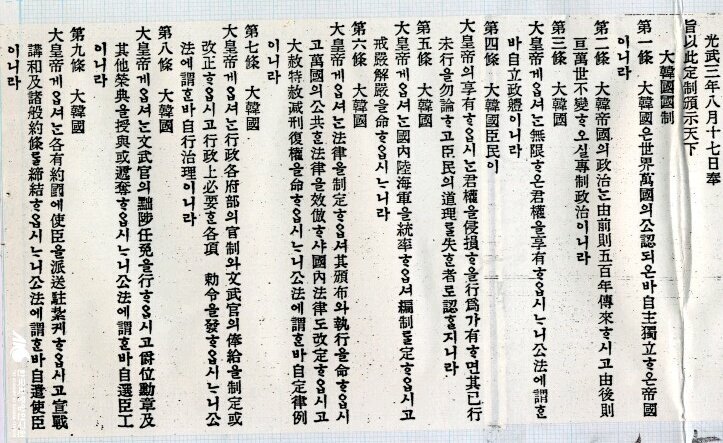 光武三年八月十七日奉
旨以此定制頒示天下
大韓國國制
第一條　大韓國은世界萬國의公認되온바自主獨立ᄒᆞ온帝國
이니라
第二條　大韓帝國의政治ᄂᆞᆫ由前則五百年傳來ᄒᆞ시고由後則
亘萬世不變ᄒᆞ오실專制政治이니라
第三條　大韓國
大皇帝게ᄋᆞᆸ셔ᄂᆞᆫ無限ᄒᆞ온君權을享有ᄒᆞᄋᆞᆸ시ᄂᆞ니公法에謂ᄒᆞᆫ
바自立政體이니라
第四條　大韓國臣民이
大皇帝의享有ᄒᆞᄋᆞᆸ시ᄂᆞᆫ君權을侵損ᄒᆞᆯ行爲가有ᄒᆞ면其已行
未行을勿論ᄒᆞ고臣民의道理를失ᄒᆞᆫ者로認ᄒᆞᆯ지니라
第五條　大韓國
大皇帝게ᄋᆞᆸ셔ᄂᆞᆫ國內陸海軍을統率ᄒᆞᄋᆞᆸ셔編制를定ᄒᆞᄋᆞᆸ시고
戒嚴解嚴을命ᄒᆞᄋᆞᆸ시ᄂᆞ니라
第六條　大韓國
大皇帝게ᄋᆞᆸ셔ᄂᆞᆫ法律을制定ᄒᆞᄋᆞᆸ셔其頒布와執行을命ᄒᆞᄋᆞᆸ시
고萬國의公共ᄒᆞᆫ法律을效倣ᄒᆞ샤國內法律도改定ᄒᆞᄋᆞᆸ시고
大赦特赦減刑復權을命ᄒᆞᄋᆞᆸ시ᄂᆞ니公法에謂ᄒᆞᆫ바自定律例
이니라
第七條　大韓國
大皇帝게ᄋᆞᆸ셔ᄂᆞᆫ行政各府部의官制와文武官의俸給을制定或
改正ᄒᆞᄋᆞᆸ시고行政上必要ᄒᆞᆫ各項　勅令을發ᄒᆞᄋᆞᆸ시ᄂᆞ니公
法에謂ᄒᆞᆫ바自行治理이니라
第八條　大韓國
大皇帝게ᄋᆞᆸ셔ᄂᆞᆫ文武官의黜陟任免을行ᄒᆞᄋᆞᆸ시고爵位勳章及
其他榮典을授與或遞奪ᄒᆞᄋᆞᆸ시ᄂᆞ니公法에謂ᄒᆞᆫ바自選臣工
이니라
第九條　大韓國
大皇帝게ᄋᆞᆸ셔ᄂᆞᆫ各有約國에使臣을派送駐紮케ᄒᆞᄋᆞᆸ시고宣戰
講和及諸般約條를締結ᄒᆞᄋᆞᆸ시ᄂᆞ니公法에謂ᄒᆞᆫ바自遣使臣
이니라